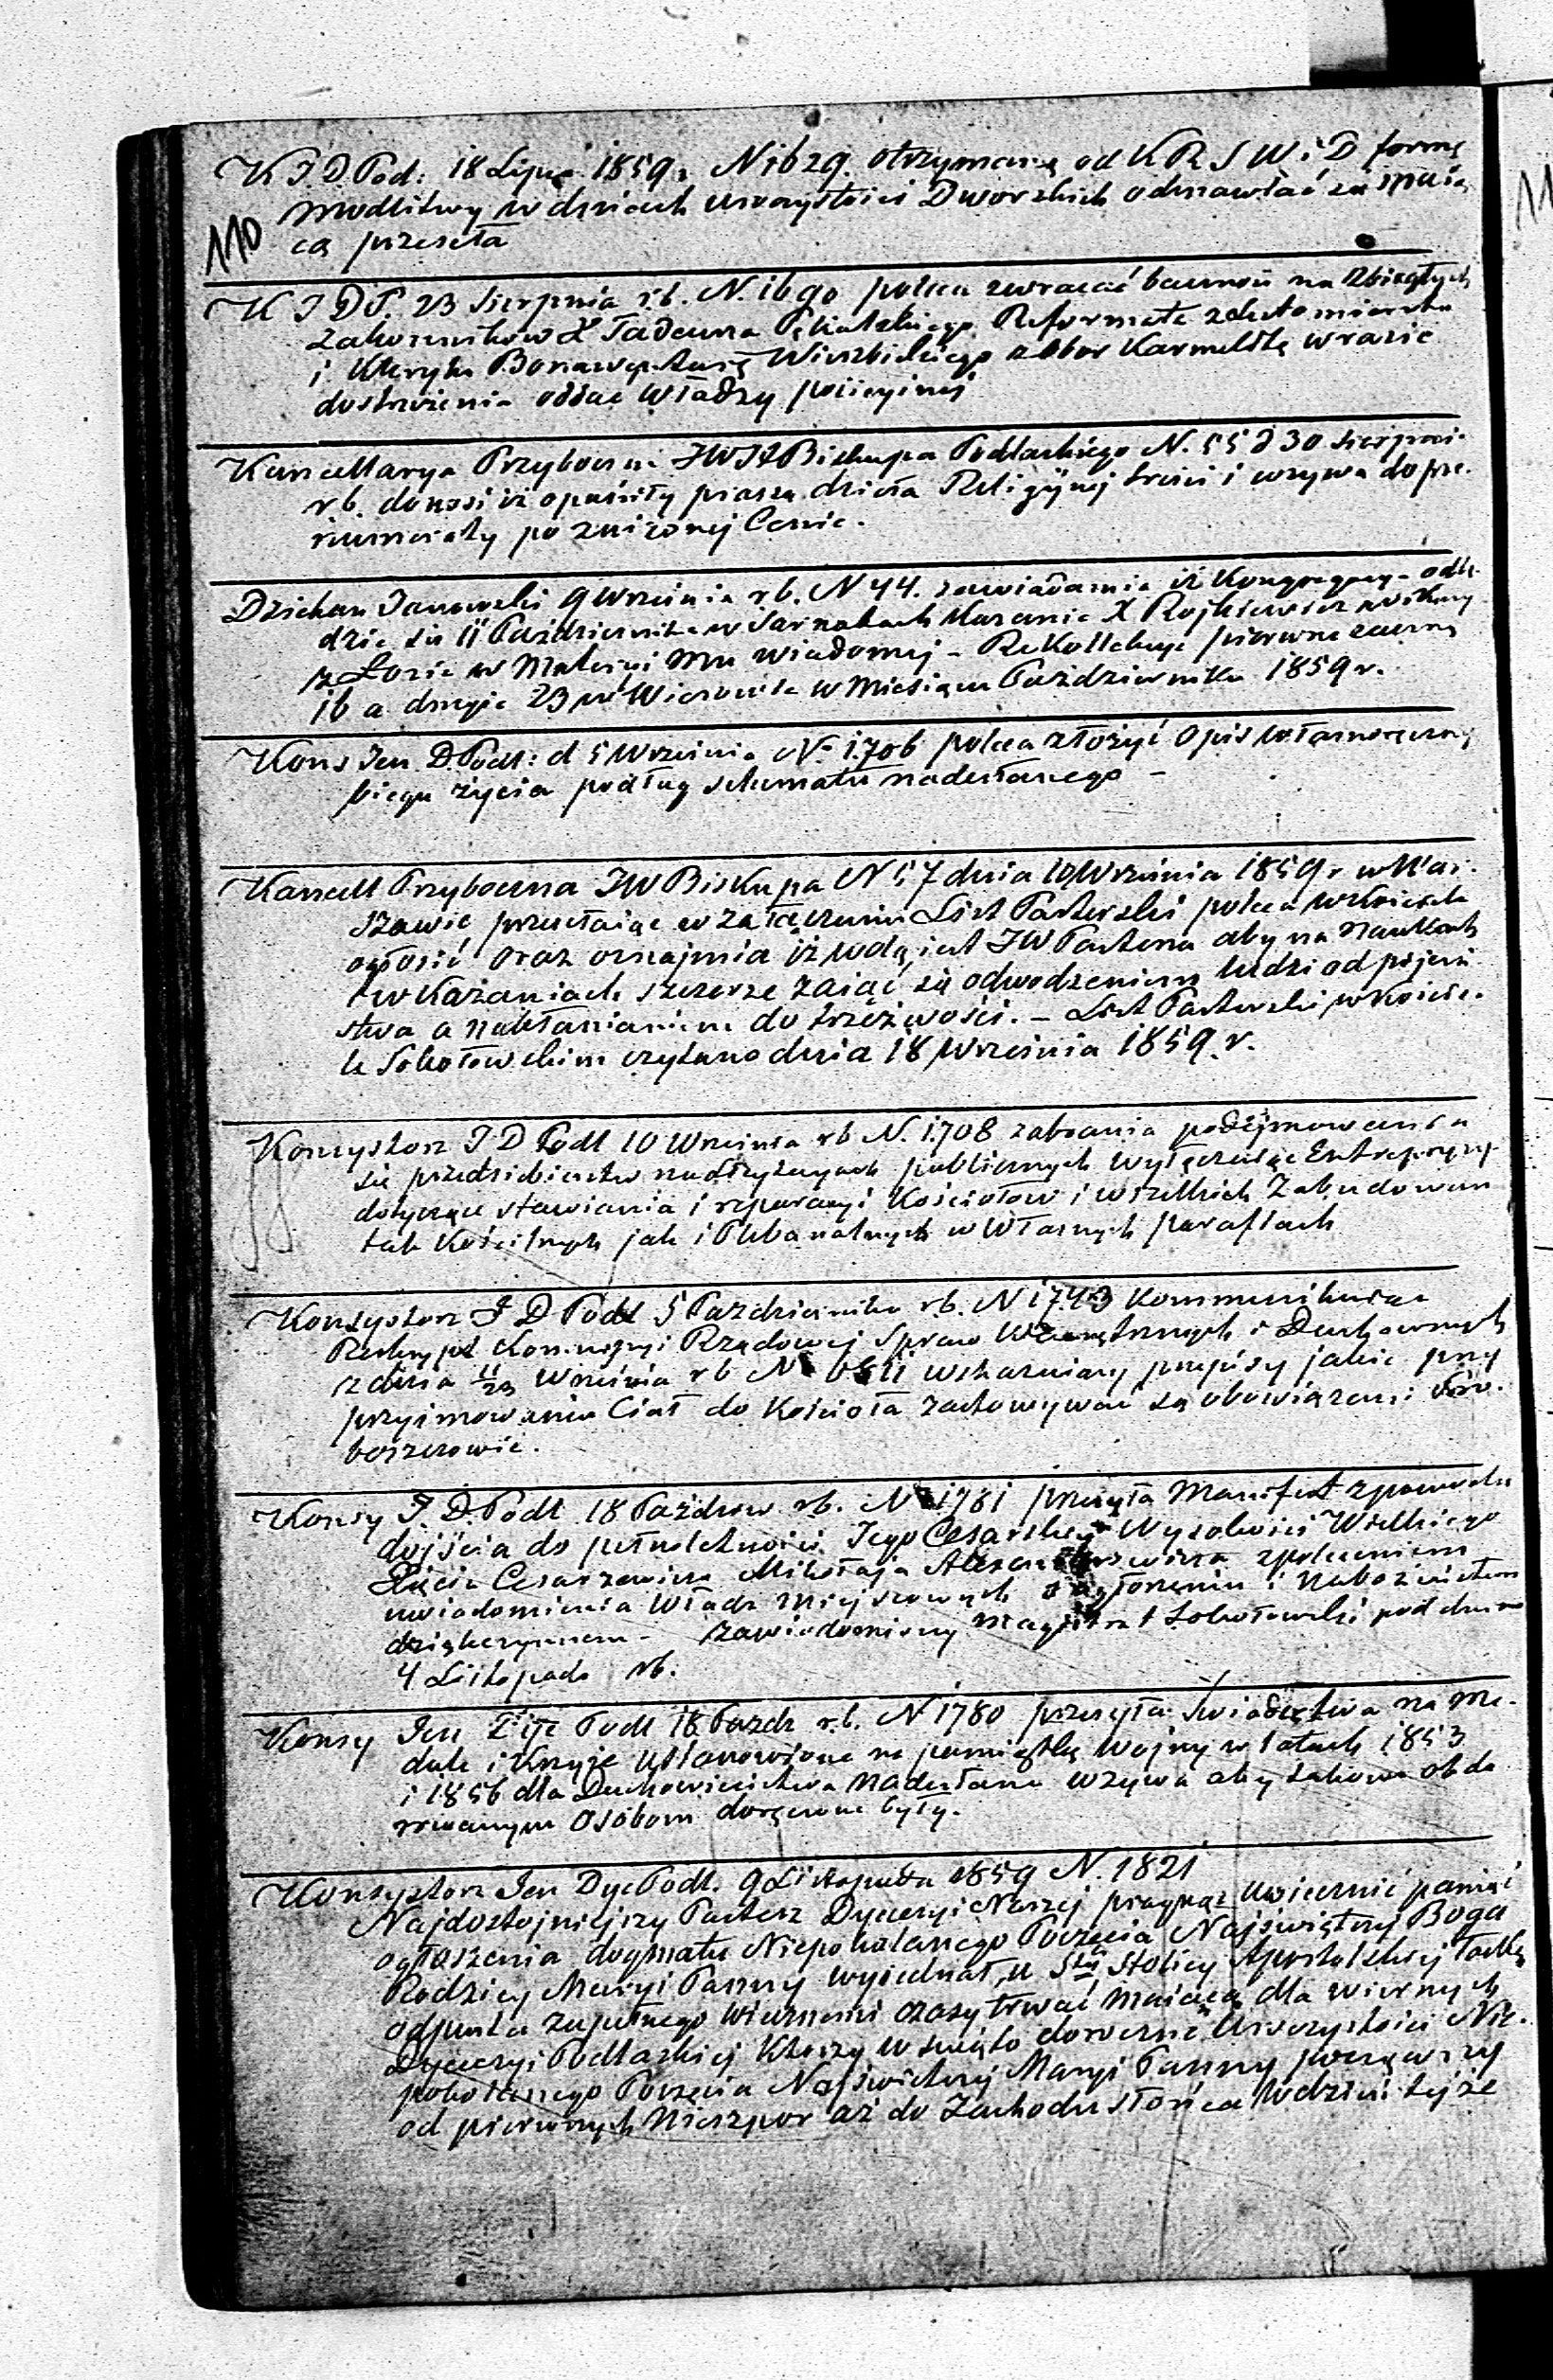 K J D Pod: 18 Lipca 1859 r. N 1629. otrzymaną od K R S W i D formę
modlitwy w dniach uroczystości Dworskich odmawiać
110
cą przeseła
K J D P. 23 Sierpnia r.b. N. 1690 poleca zwracać baczność na zbiegłych
zakonników X Tadeusza Reformata
i Kleryka Bonawenturę Wierzbickiego z Obor Karmelitę w razie
dostrzeżenia oddać Władzy policyjnej
Kancellarya Przyboczna JWJX Biskupa Podlaskiego N. 55 d 30 Sierpnia
r b. donosi iż opuściły prassę dzieła Religijnej treści i wzywa do pre-
numeraty po zniżonej Cenie.
Dziekan Janowski 9 Września r b. N 44. zawiadamia iż Kongregacya odbę-
dzie się 11 Października w Sarnakach Kazanie X Rojkiewicz wikary
z Łosic w Materyi Mu wiadomej – Rekollekcye pierwsze zaczną
16 a drugie 23 w Miesiącu Październiku 1859 r.
Kons Jen D. Podl: d 5 Września N. 1706 poleca złożyć Opis własnoręczny
biegu życia podług schematu nadesłanego –
Kancell Przyboczna JW Biskupa N 57 dnia 10 Września 1859 r w War-
szawie przesłaiąc w załączeniu List Pasterski poleca w Kościele
ogłosić oraz oznajmia iż wolą iest JW Pasterza aby na Naukach
i w Kazaniach szczerze zaiąć się odwodzeniem ludzi od pijań-
stwa a nakłanianiem do trzeźwości. – List Pasterski w Koście-
le Sokołowskim czytano dnia 18 Września 1859 r.
Konsystorz J D Podl 10 Września r b N. 1708 zabrania podejmowania
się przedsiebierstw na licytacyach publicznych wyłączaiąc Entrepryzy
dotyczące stawiania i reparacyi Kościołów i wszelkich Zabudowań
tak Kościelnych jak i Plebanalnych w Własnych parafiach
Konsystorz J D Podl 5 Października r b. N 1743 Kommunikuiąc
Reskrypt Kommissyi Rządowej Spraw Wewnętrznych i Duchownych
z dnia 11/23 Września r b N wskazuiący przepisy jakie przy
przyimowaniu Ciał do Kościoła zachowywać są obowiązani Pro-
boszczowie.
Konsy J. D. Podl 18 Paździer r.b. N 1781 przesyła Manifest z powodu
dojścia do pełnoletności Jego Cesarskiej Wysokości Wielkiego
Xięcia Cesarzewicza Mikołaja Alexandrowicza z poleceniem
uwiadomienia Władz miejscowych o ogłoszeniu i Nabożeństwie
dziękczynnem – zawiadomiony Magistrat Sokołowski pod dniem
4 Listopada r b.
Konsy Jen Podl 18 Paźdz r.b. N 1780 przesyła Świadectwa na me-
dale i Krzyże ustanowione na pamiątkę Wojny w latach 1853
i 1856 dla Duchowieństwa nadesłane wzywa aby takowe obda-
rowanym Osobom doręczone były.
Konsystorz Jen Dyc Podl. 9 Listopada 1859 N. 1821
Najdostojniejszy Pasterz Dyecezyi Naszej pragnąc uwiecznić pamięć
ogłoszenia dogmatu Niepokalanego Poczęcia Najświętszej Boga
Rodzicy Maryi Panny wyiednał u Stej Stolicy Apostolskiej łaskę
odpustu zupełnego wiecznemi czasy trwać maiącą dla wiernych
Dyecezyi Podlaskiej Którzy w święto doroczne Uroczystości Nie-
pokolanego Poczęcia Najświętszej Maryi Panny począwszy
od pierwszych Nieszpor aż do Zachodu słońca w dzień tejże